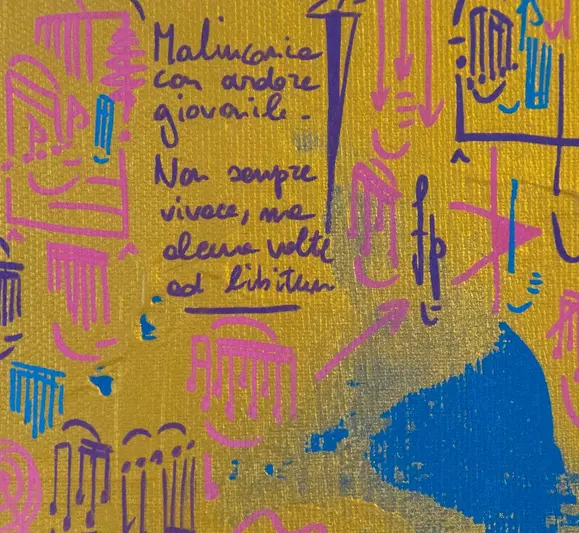 Malinconia
con ardore
giovanile.
Non sempre
vivace, ma
alcune volte
ad libitum
fp